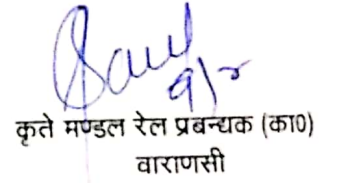 कृते मण्डल रेल प्रबन्धक (का०)
वाराणसी